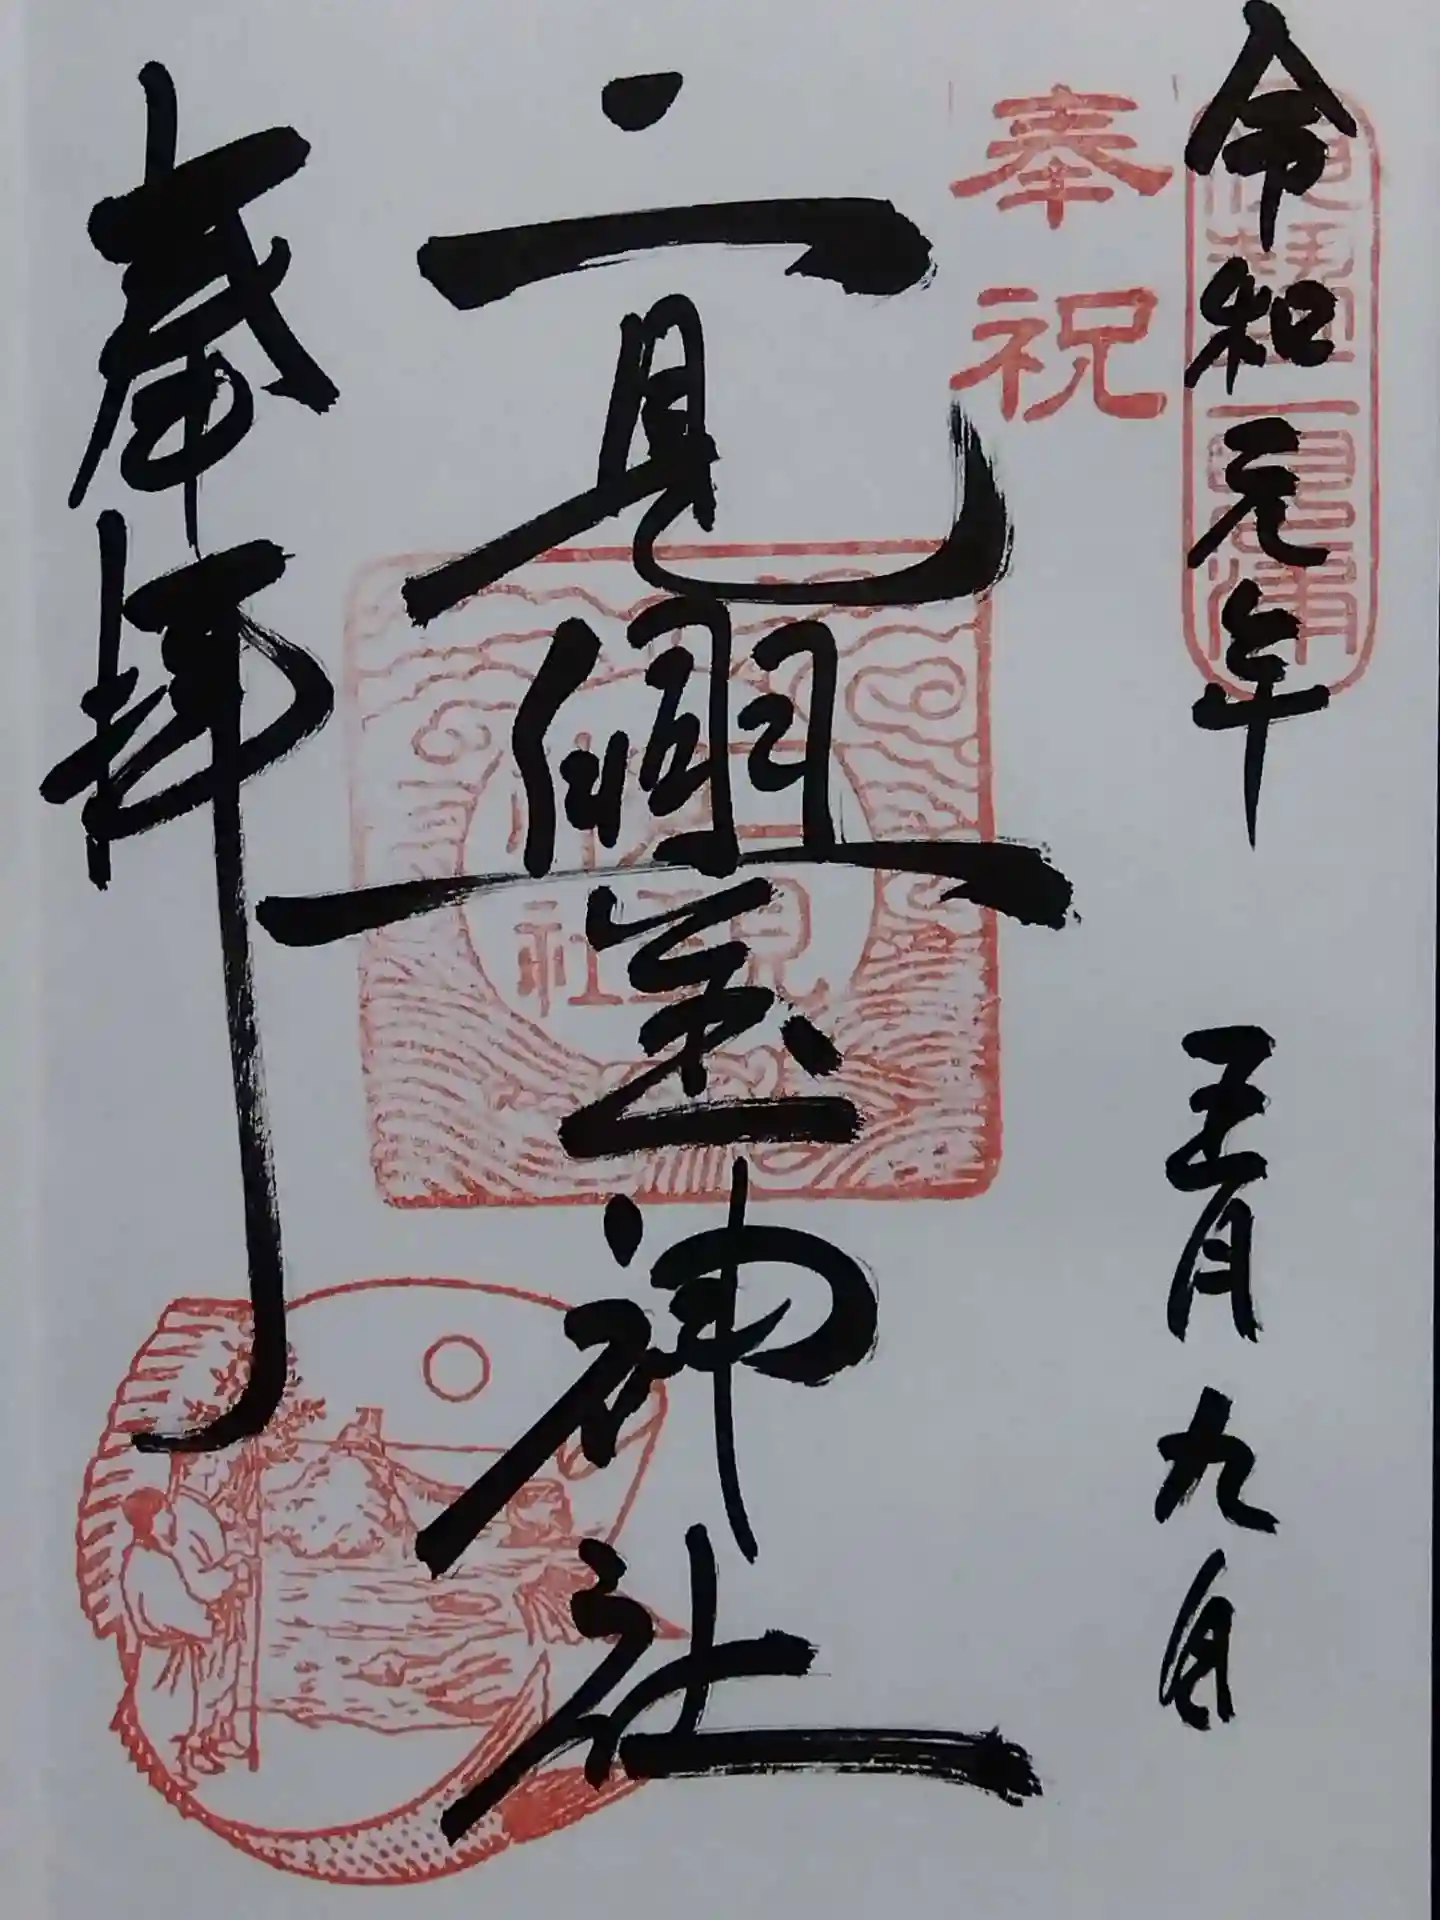 令和元年 五月九日
奉祝
二見興玉神社
奉拝